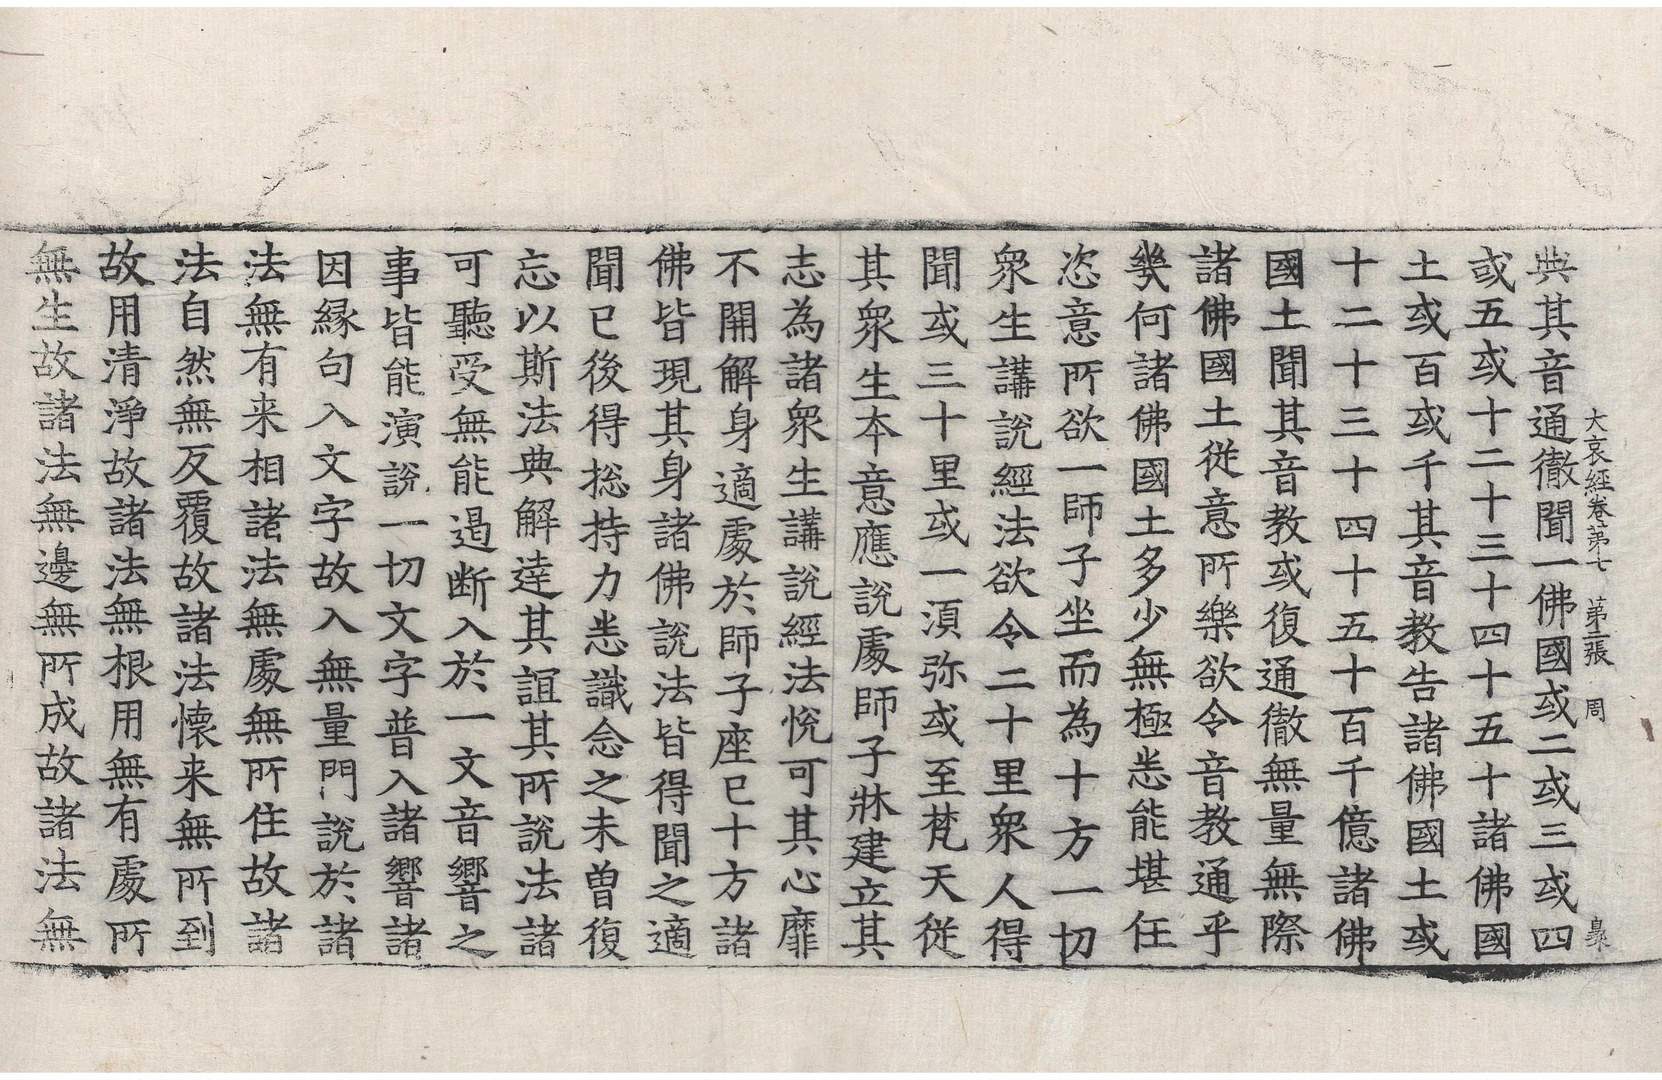 大哀經卷第七 第三張 周 㬥
典其音通徹聞一佛國或二或三或四
或五或十二十三十四十五十諸佛國
土或百或千其音教告諸佛國土或
十二十三十四十五十百千億諸佛
國土聞其音教或復通徹無量無際
諸佛國土從意所樂欲令音教通乎
幾何諸佛國土多少無極悉能堪任
恣意所欲一師子坐而為十方一切
眾生講說經法欲令二十里眾人得
聞或三十里或一須弥或至梵天從
其眾生本意應說處師子牀建立其
志為諸眾生講說經法悅可其心靡
不開解身適處於師子座已十方諸
佛皆現其身諸佛說法皆得聞之適
聞已後得捴持力悉識念之未曾復
忘以斯法典解達其誼其所說法諸
可聽受無能遏断入於一文音響之
事皆能演說一切文字普入諸響諸
因縁句入文字故入無量門說於諸
法無有来相諸法無處無所住故諸
法自然無反覆故諸法懷来無所到
故用清淨故諸法無根用無有處所
無生故諸法無邊無所成故諸法無